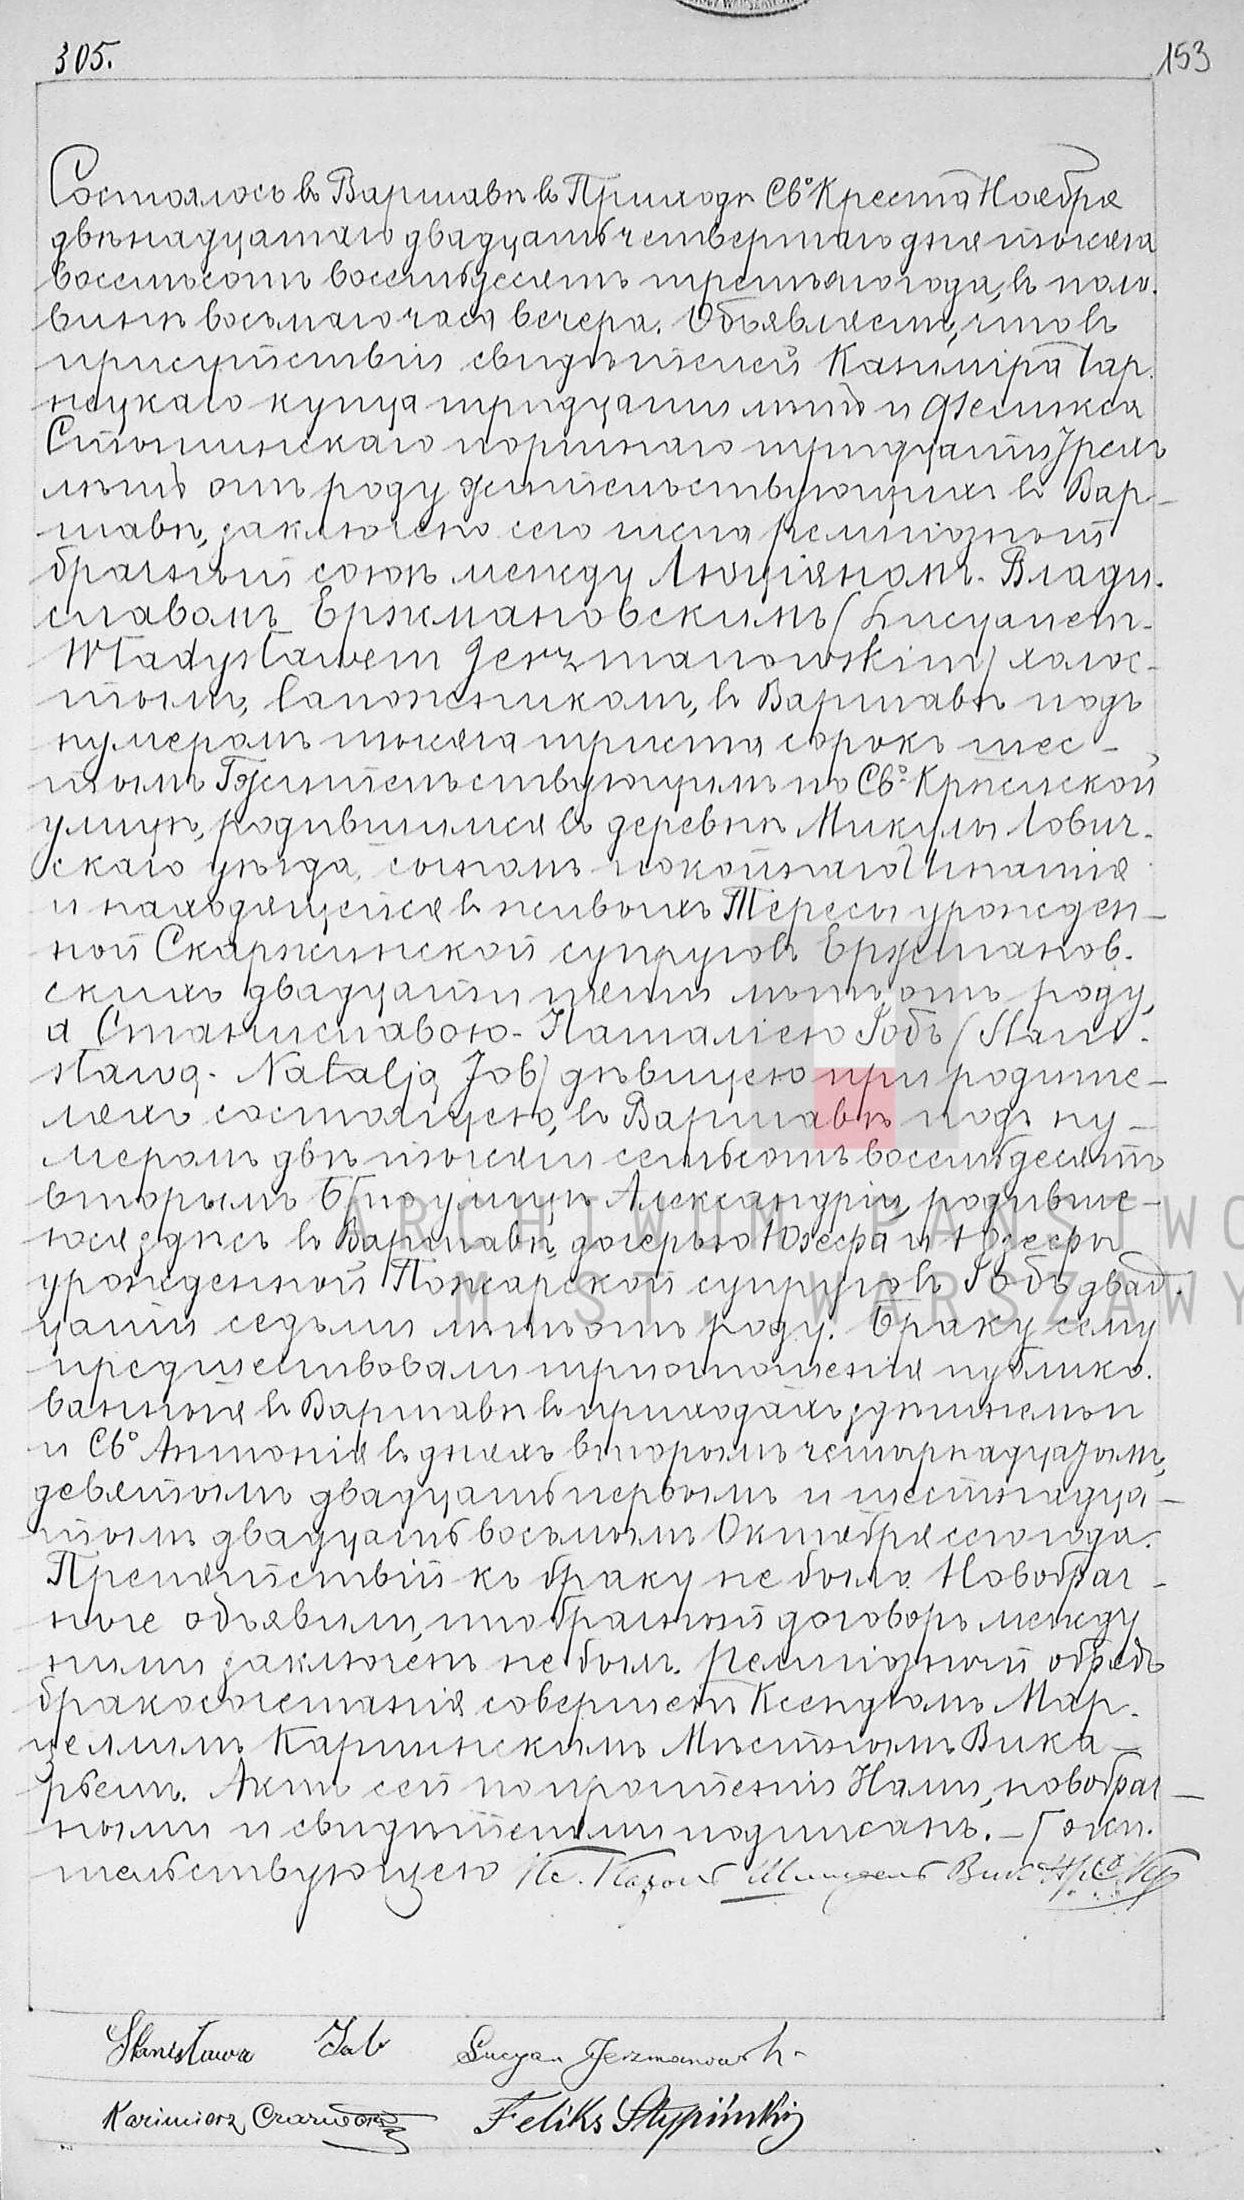 305.
153
Состоялось въ Варшавѣ въ Приходѣ Св.º Креста Ноября
двѣнадцатаго двадцать четвертаго дня тысяча
восемьсотъ восемьдесятъ третьяго года, въ поло-
винѣ восьмаго часа вечера. Объявляемъ, что въ
присутствіи свидѣтелей Казиміра Чар-
нецкаго купца тридцати лѣтъ и Феликса
портнаго тридцати трехъ
лѣтъ отъ роду жительствующихъ въ Вар-
шавѣ, заключенъ сего числа религіозный
брачный союзъ между Люціяномъ-Влади-
славомъ Ержмановскимъ (Lucyanem-
Władysławem Jerzmanowskim) холос-
тымъ, сапожникомъ, въ Варшавѣ подъ
нумеромъ тысяча триста сорокъ шес-
тымъ жительствующимъ по Св.º Крыжской
улицѣ, родившимся въ деревнѣ Лович-
скаго уѣзда, сыномъ покойнаго Игнатія
и находящейся въ живыхъ Тересы урожден-
ной Скаржинской супруговъ Ержманов-
скихъ двадцати пяти лѣтъ отъ роду,
а Станиславою-Наталіею Іобъ (Stani-
sławą-Natalją Job) дѣвицею при родите-
ляхъ состоящею, въ Варшавѣ подъ ну-
меромъ двѣ тысячи семьсотъ восемьдесятъ
вторымъ Б по улицѣ Александріи, родивше-
юся здѣсь въ Варшавѣ, дочерью Юзефа и Юзефы
урожденной Пожарской супруговъ Іобъ двад-
цати седьми лѣтъ отъ роду. Браку сему
предшествовали три оглашенія публико-
ванныя въ Варшавѣ въ приходахъ здѣшнемъ
и Св.º Антонія въ дняхъ второмъ четырнадцатомъ,
девятомъ двадцать первомъ и шестнадца-
томъ двадцать восьмомъ Октября сего года.
Препятствій къ браку не было. Новобрач-
ные объявили, что брачный договоръ между
ними заключенъ не былъ. Религіозный обрядъ
бракосочетанія совершенъ Ксендзомъ Мар-
целимъ Мѣстнымъ Вика-
ріемъ. Актъ сей по прочтеніи Нами, новобрач-
ными и свидѣтелями подписанъ.
ARCHIWUM PAŃSTWO
M. ST. WARSZAWY
Stanisława Job Lucyan Jerzmanowski
Kazimierz Feliks Stypiński